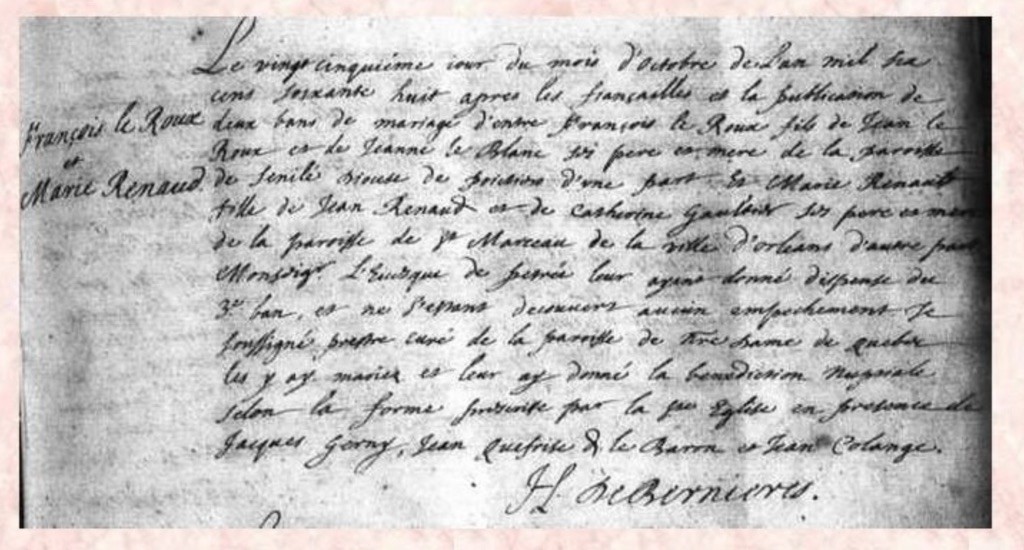 Le vingt cinquieme iour du mois d'octobre de L'an mil six
cens soixante huit apres les fiançailles et la publication de
deux bans de mariage d'entre françois le Roux fils de Jean le
Roux et de Jeanne le Blanc ses pere et mere de la paroisse
de senilé diocese de poictiers d'vne part Et Marie Renault
fille de Jean Renaud et de Catherine Gaultier ses pere et mere
de la paroisse de st Marceau de la ville d'orleans d'autre part
Monseigr. L'Euesque de petrée leur ayant donné dispense du
3e ban, et ne s'estant decouvert aucun empechement Je
soussigné prestre curé de la paroisse de nre dame de quebec
les y ay mariez et leur ay donné la benediction nuptiale
selon la forme prescrite par la ste Eglise en presence de
Jacques Jean le Baron et Jean Colange.
H. DeBernieres.
françois le Roux
et
Marie Renaud